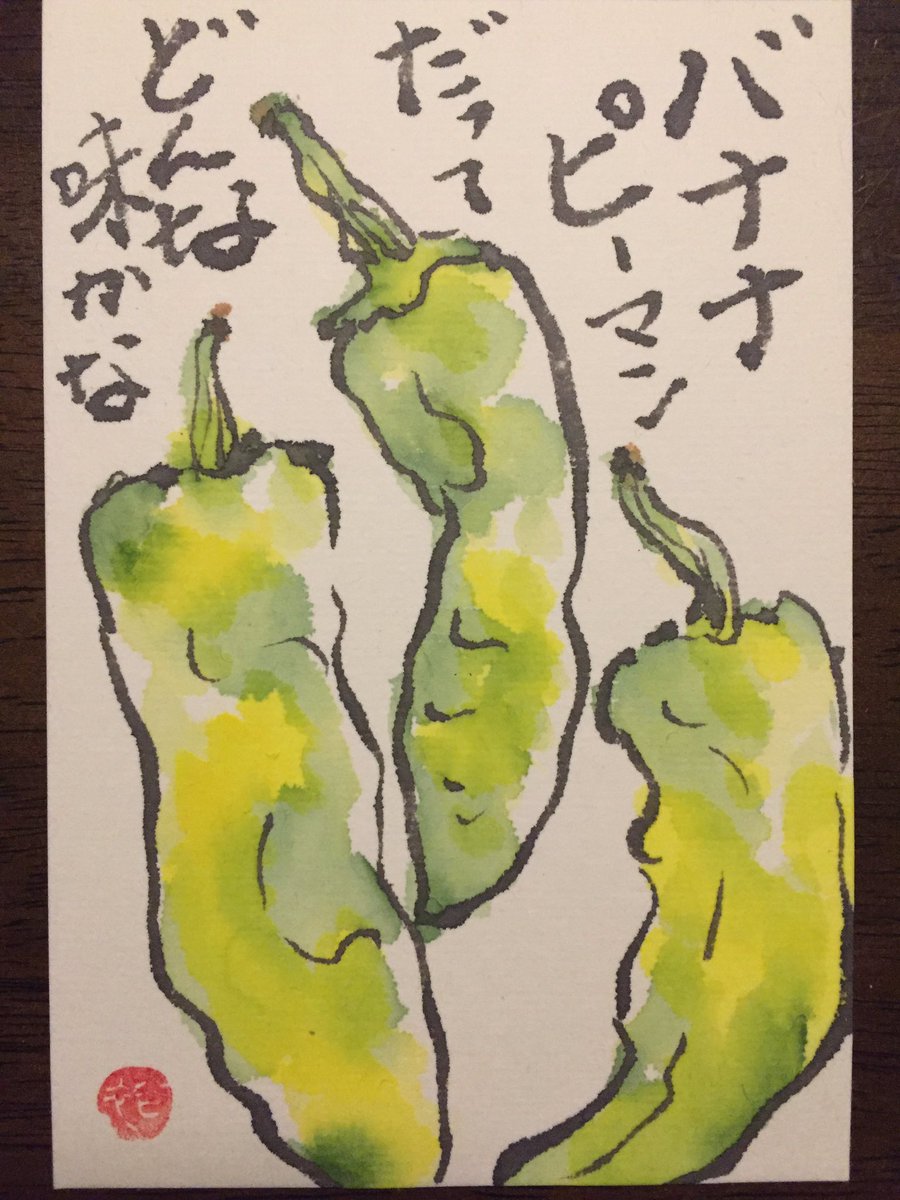 バナナ
ピーマン
だって
どんな
味かな
花